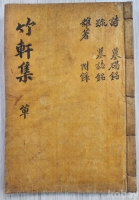 竹軒集 單
詩 墓碣銘
疏 墓誌銘
雜著 附錄